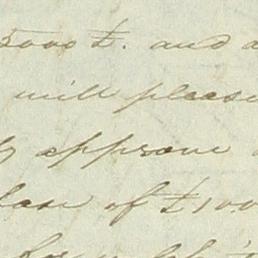 5000 £. and a
will please
approve
of £100